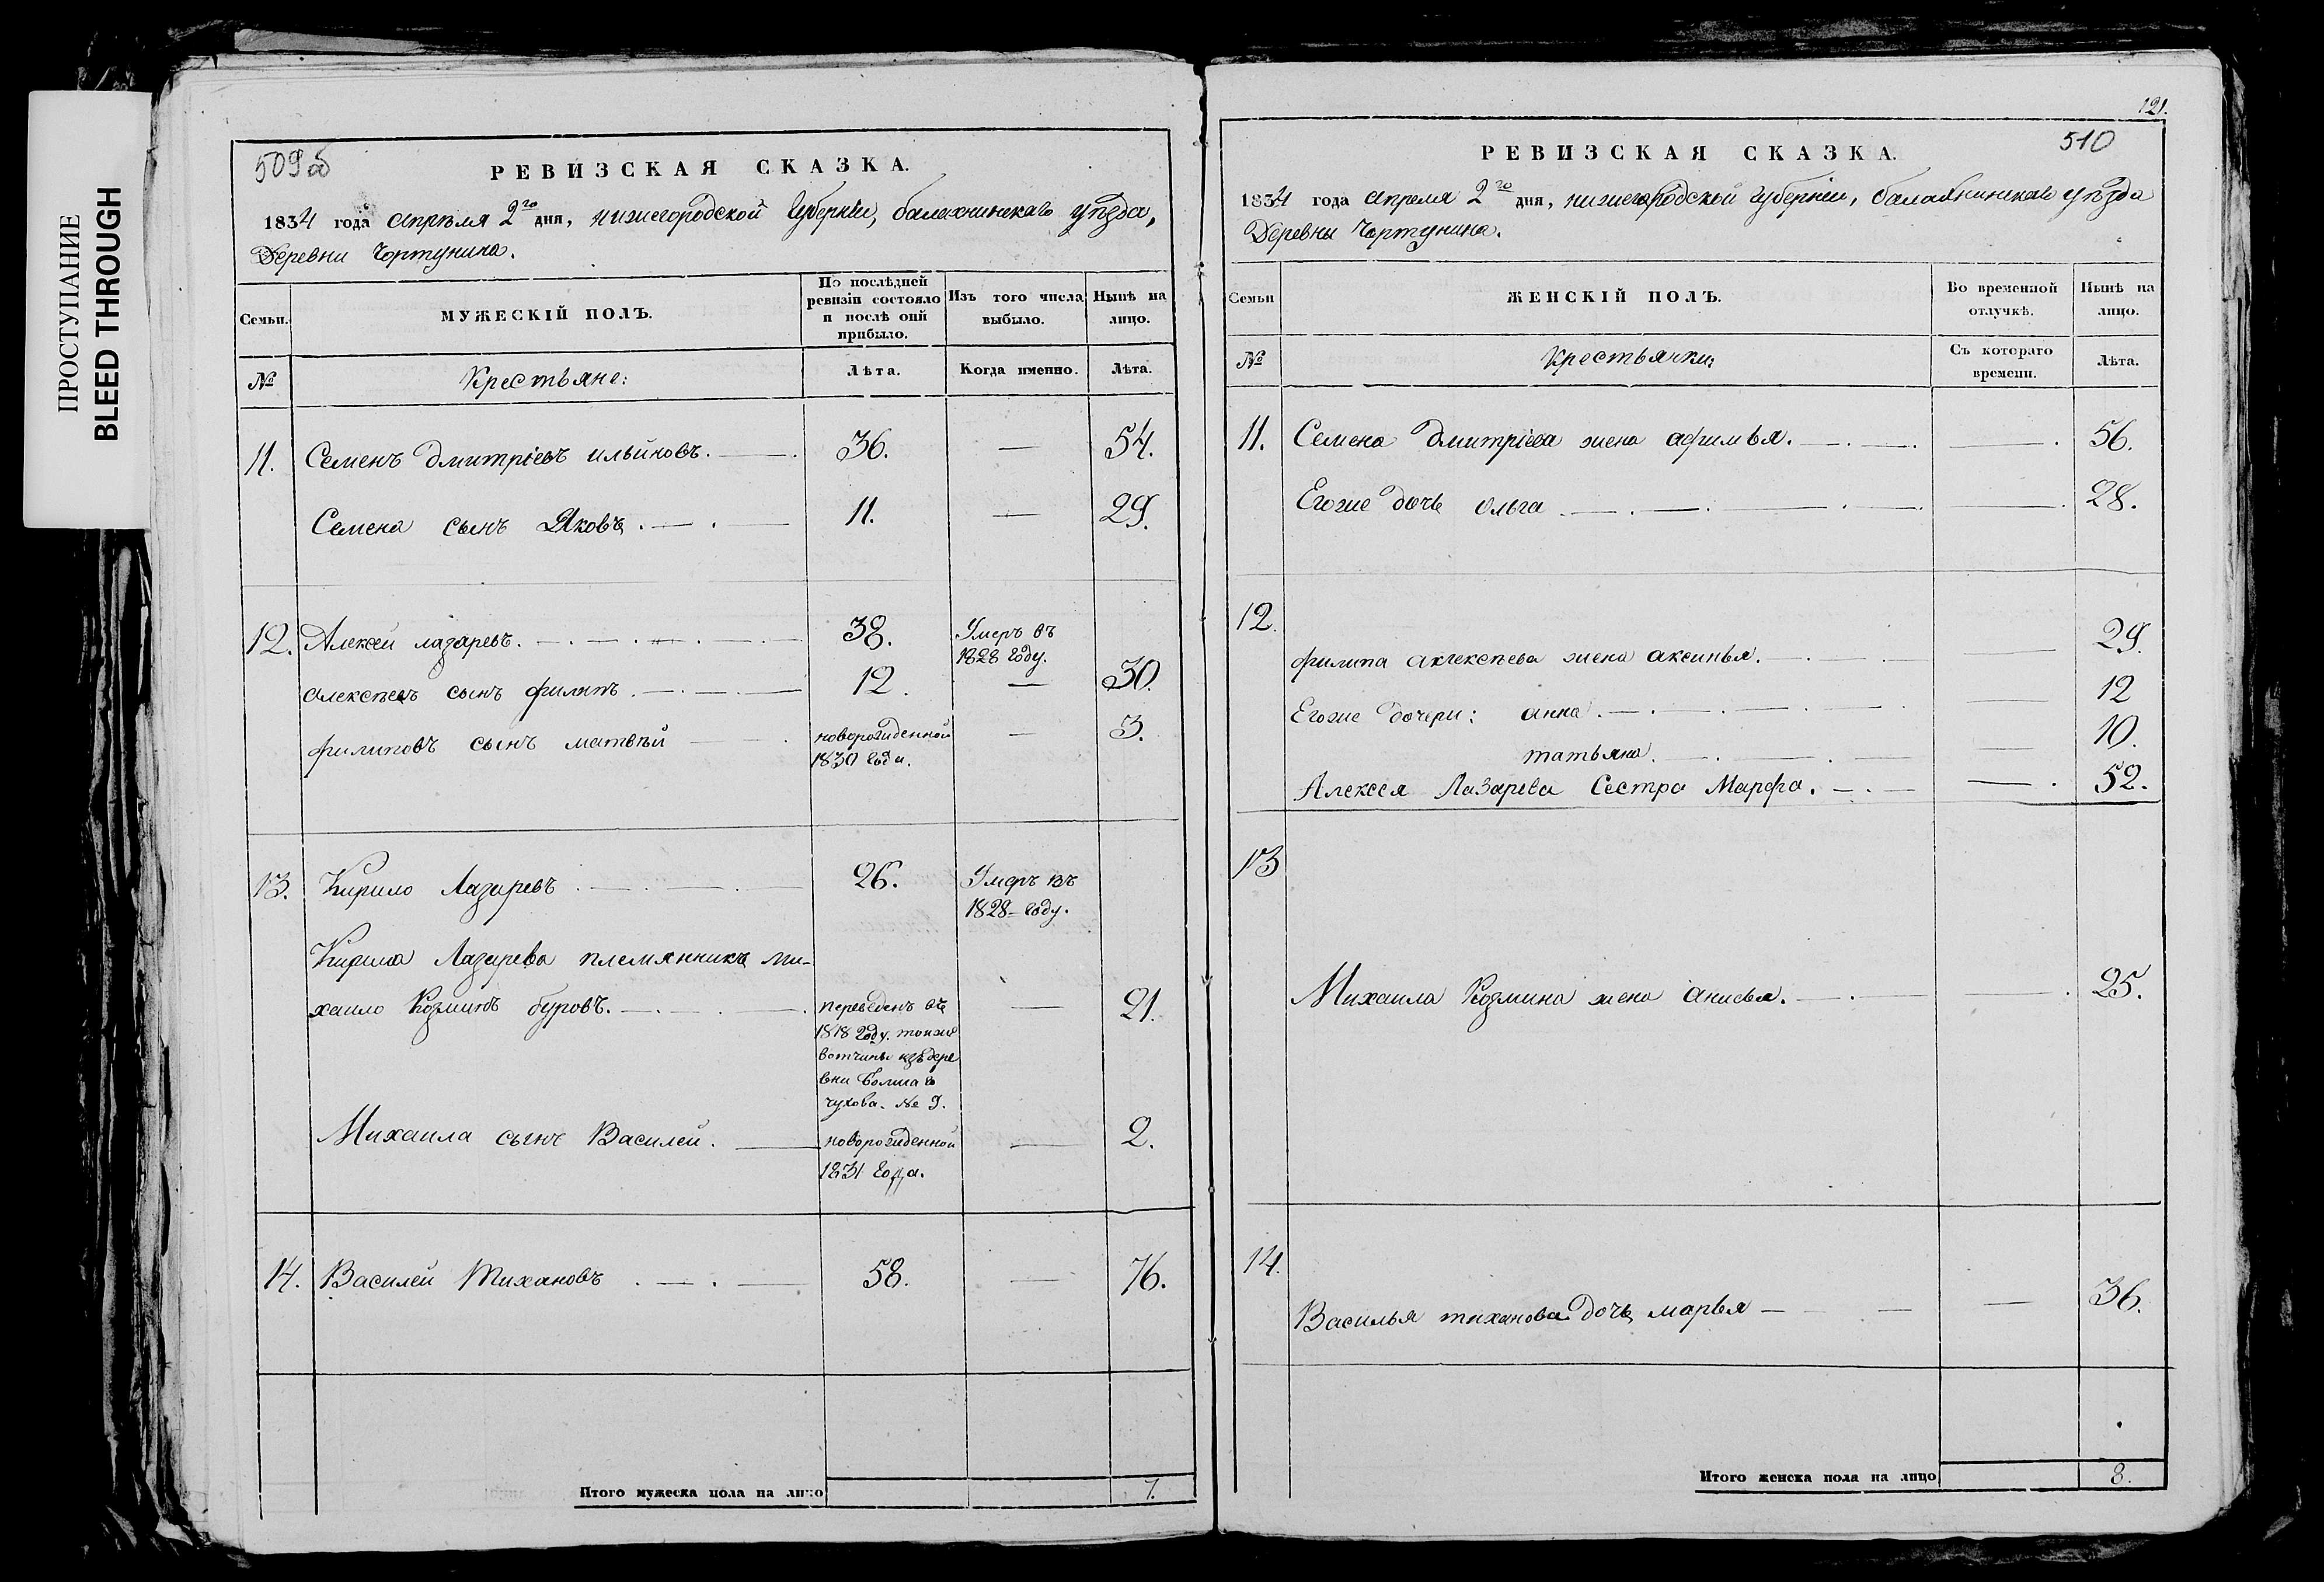 ПРОСТУПАНИЕ
BLEED THROUGH
509об
РЕВИЗСКАЯ СКАЗКА.
1834 года апрѣля 2го дня, нижегородской губерніи, балахнинскаго уѣзда,
Деревни Чортунина.
Семьи.
МУЖЕСКІЙ ПОЛЪ.
По послѣдней ревизіи состояло и послѣ оной прибыло.
Изъ того числа выбыло.
Нынѣ на лицо.
№
Крестьяне:
Лѣта.
Когда именно.
Лѣта.
11. Семенъ Дмитріевъ ильиновъ. 36. — 54.
Семена сынъ Яковъ. 11. — 29.
12. Алексеи лазаревъ. 38. Умеръ въ 1828 году.
алексѣевъ сынъ филипъ. 12. — 30.
филиповъ сынъ матвѣй новорожденной 1830 года. — 3.
13. Кирило Лазаревъ. 26. Умеръ въ 1828 году.
Кирила Лазарева племянникъ ми-
хаило Козминъ буровъ. — 21.
переведенъ въ
1818 году. тоижѣ
вотчины изъ дере
вни
№ 9.
Михаила сынъ Василеи. новорожденной 1831 года. — 2.
14. Василеи Тихановъ 58. — 76.
Итого мужеска пола на лицо 7.
121.
510
РЕВИЗСКАЯ СКАЗКА.
1834 года апреля 2го дня, нижегородской губерніи, балахнинскаго уѣзда
Деревни Чортунина.
Семьи
ЖЕНСКІЙ ПОЛЪ.
Во временной отлучкѣ.
Нынѣ на лицо.
№
Крестьянки:
Съ котораго времени.
Лѣта.
11. Семена Дмитріева жена афимья. — 56.
Егоже дочь ольга — 28.
12.
филипа алексѣева жена аксинья. — 29.
Егоже дочери: анна. — 12
татьяна. — 10.
Алексея Лазарева Сестра Марфа. — 52.
13
Михаила Козмина жена анисья. — 25.
14.
Василья тиханова дочь марья — 36.
Итого женска пола на лицо 8.